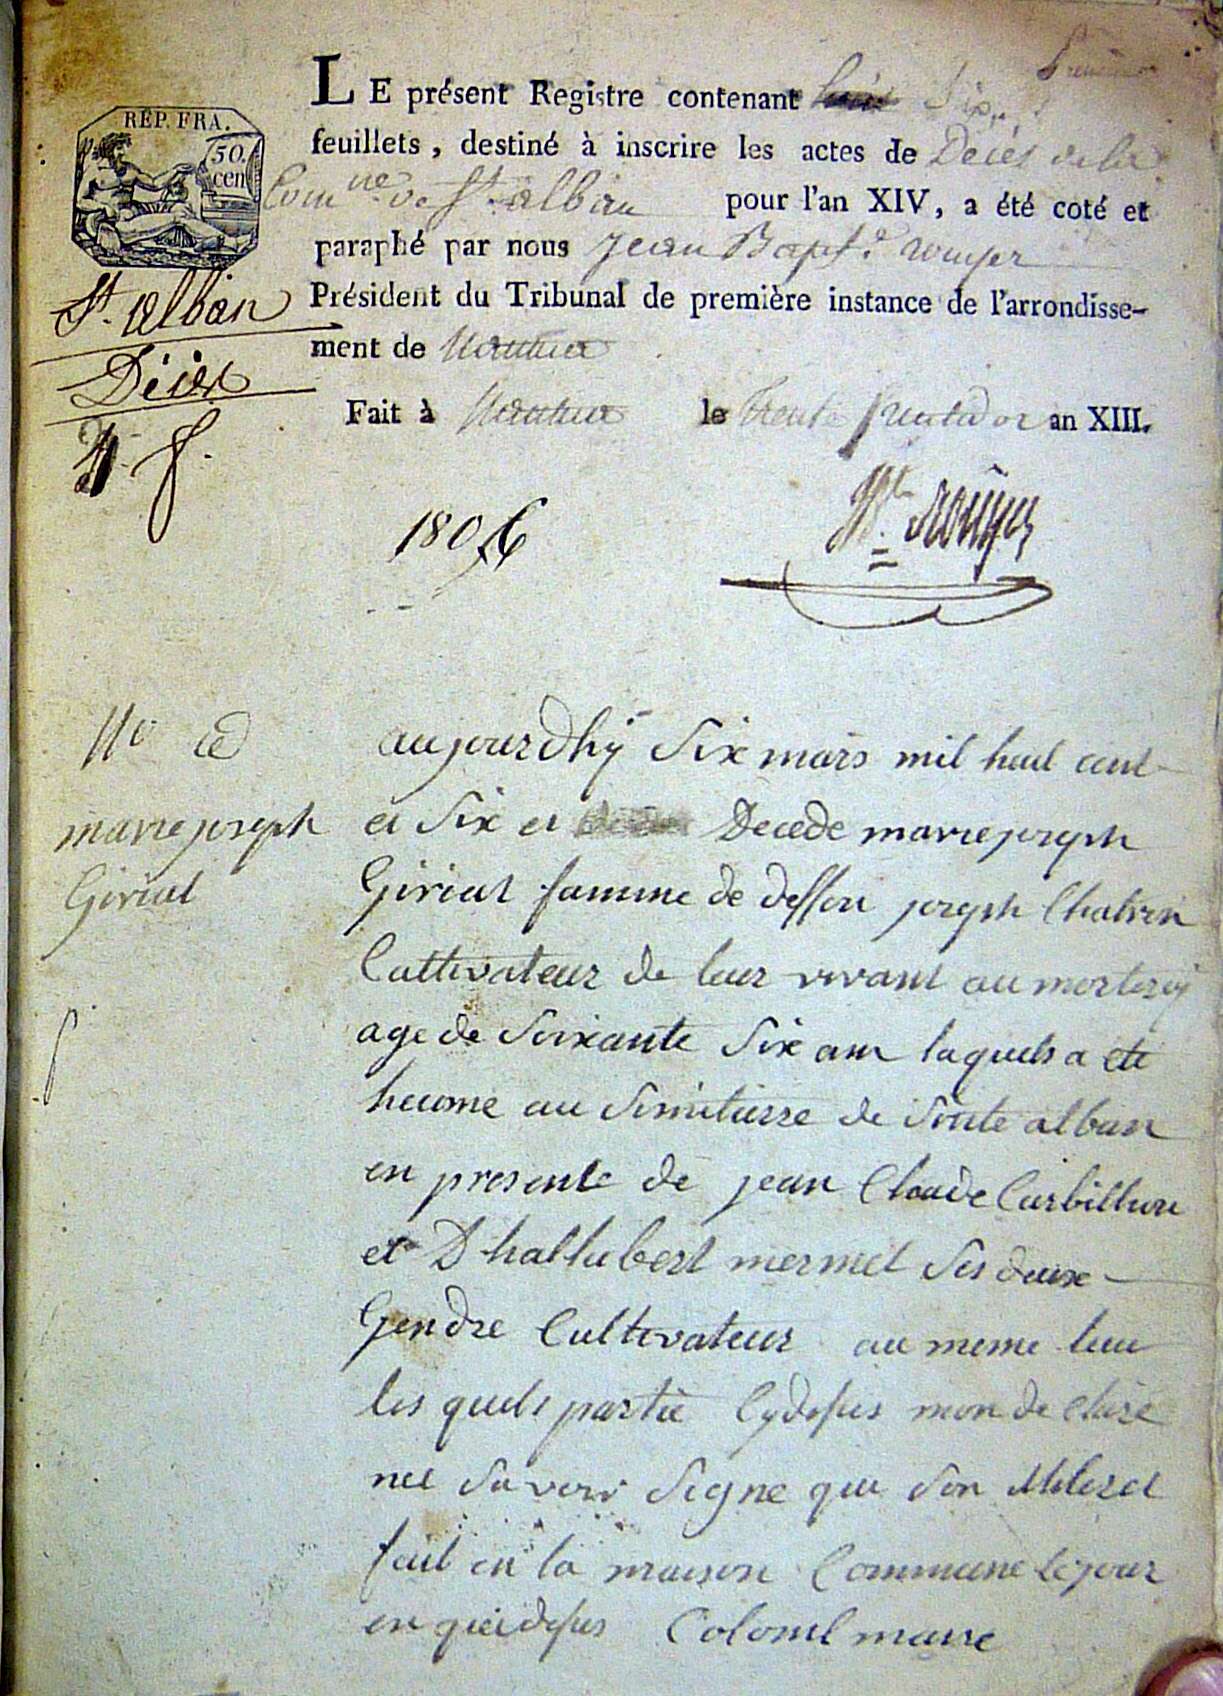 Premier
LE présent Registre contenant Six
feuillets, destiné à inscrire les actes de Décès de la
Comne de St alban pour l'an XIV, a été coté et
paraphé par nous Jean Bapte rouyer
Président du Tribunal de première instance de l'arrondisse-
ment de Nantua
Fait à Nantua le Trente fructidor an XIII.
RÉP. FRA.
50.
cen
St. alban
Décès
1806
Bte. rouyer
marie joseph
Giriat
aujourdhÿ Six mars mil huit cent
et Six et Decede marie joseph
Giriat famme de deffon joseph Chatron
Cultivateur de leur vivant au
age de Soixante Six am laquels a ete
heume au Simitierre de Sinte alban
en presente de jean Cloade Carbillure
et Dhallubert mermet Ses deux
Gendre Cultivateur au meme lieu
les quels partie Cydesus mon de Clare
nee Savoir Signe que Son
fait en la maison Commune le jour
en quei desus Colomb maire